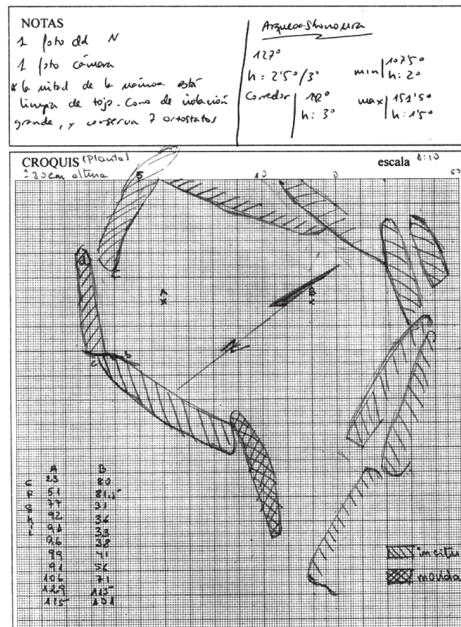 NOTAS
1 foto del N
1 foto cámara
* la mitad de la misma está
limpia de tojo. Cono de violación
grande, y conserva 7 ortostatos
Arqueoastronomía
127º
h: 2'5º/3º
min 107'5º
h: 2º
Corredor
h: 3º
max 151'5º
h: 1'5º
CROQUIS (Planta)
escala 1:10
20 cm altura
5
10
0
A
B
N
d
c
b
A B
23 80
51 81,5
77 31
92 36
94 33
96 38
99 41
91 56
106 71
129 115
115 101
in situ
movida